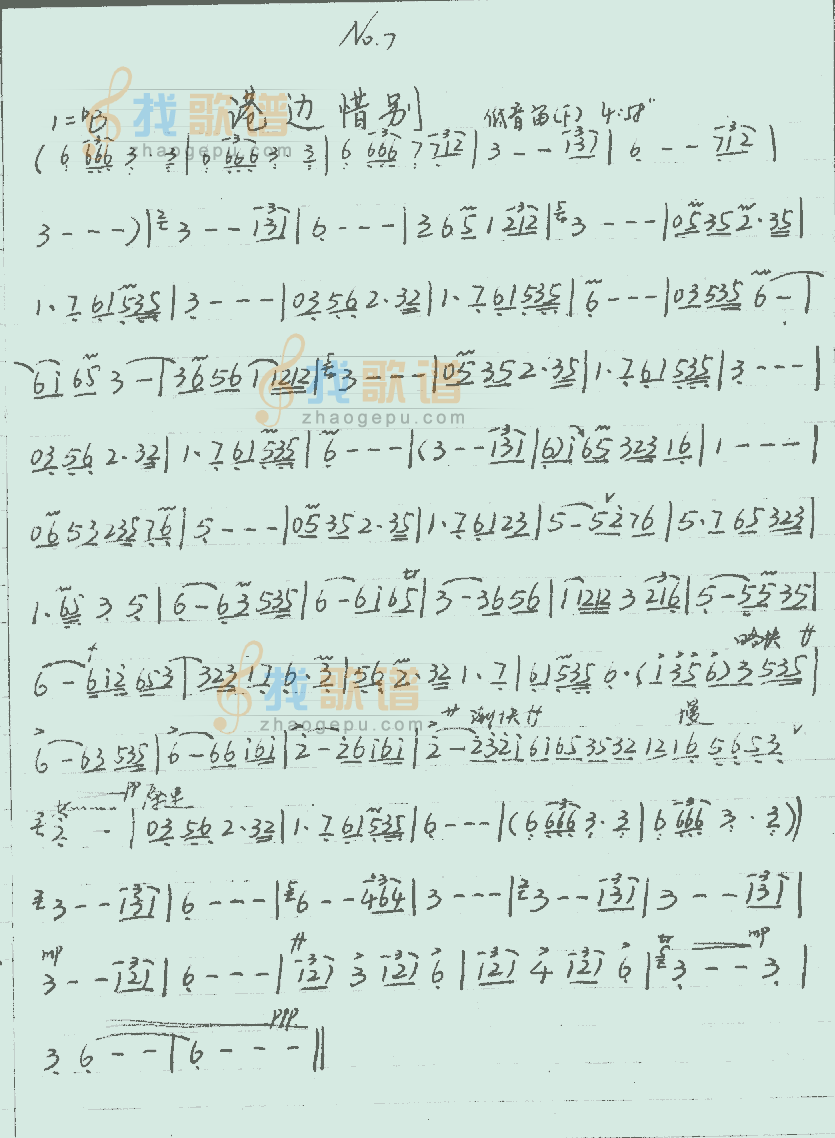 No.7
1=ᵇB 港边惜别 低音笛(F) 4:58"
找歌谱
zhaogepu.com
(6 666 3· 3|6 666 3· 3|6 666 7 712|3 - - 131|6 - - 712|
3 - - -)|3 - - 131|6 - - -|3 6 5 1 212|3 - - -|05352·35|
1·761535|3 - - -|03562·32|1·761535|6 - - -|03535 6 -|
6165 3 -|365611212|3 - - -|05352·35|1·761535|3 - - -|
找歌谱
zhaogepu.com
03562·32|1·761535|6 - - -|(3 - - 131|6)16532316|1 - - - -|
065323576|5 - - -|05352·35|1·76123|5 - 5276|5·765323|
1·65 3 5|6 - 63535|6 - 6165 tr|3 - 3656|11212 3 216|5 - 5535|
6 - 612653|323176·3|562·32 1·7|61535 6·(1356)3535|
找歌谱
zhaogepu.com
6 - 63535|6 - 66161|2 - 26161|2 - 2321616535321216 5653
渐快 慢
2 -|03562·32|1·761535|6 - - -|(6 666 3· 3|6 666 3 · 3)|
tr pp
3 - - 131|6 - - -|6 - - 464|3 - - -|3 - - 131|3 - - 131|
mp tr mp
3 - - 121|6 - - -|121 3 121 6|121 4 121 6|3 - - 3|
ppp
3 6 - -|6 - - -‖